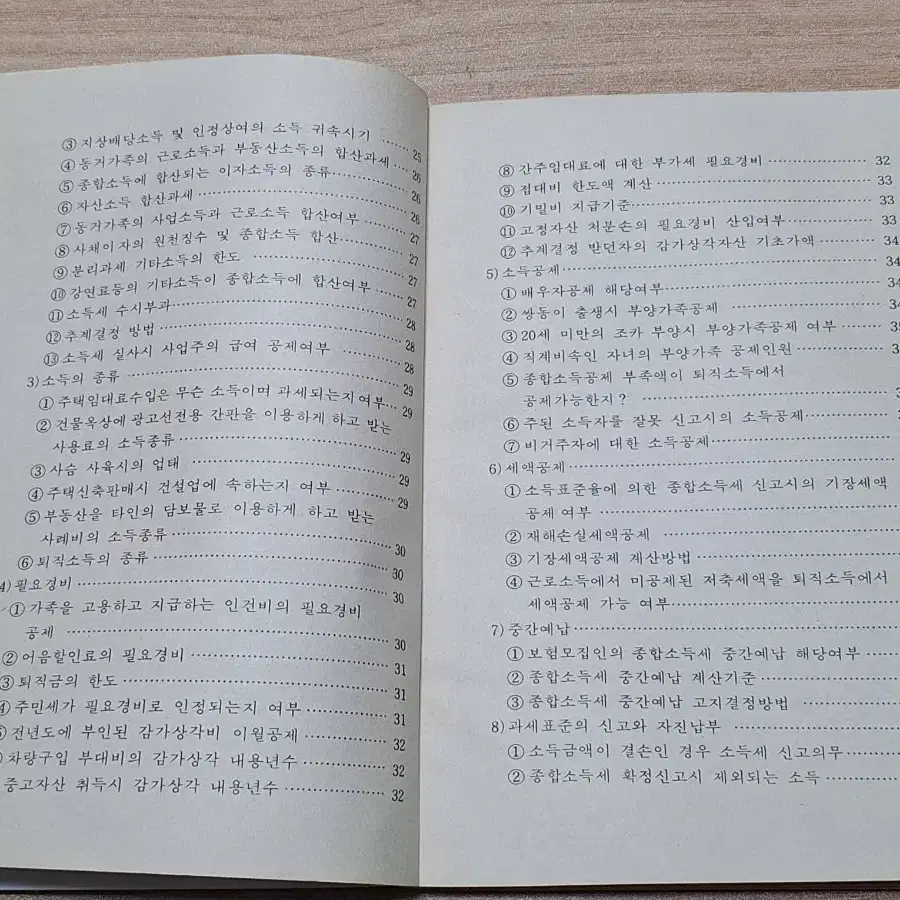 ③ 지상배당소득 및 인정상여의 소득 귀속시기 ……… 25
④ 동거가족의 근로소득과 부동산소득의 합산과세 … 26
⑤ 종합소득에 합산되는 이자소득의 종류 ……… 26
⑥ 자산소득 합산과세 ……… 26
⑦ 동거가족의 사업소득과 근로소득 합산여부 ……… 27
⑧ 사채이자의 원천징수 및 종합소득 합산 ……… 27
⑨ 분리과세 기타소득의 한도 ……… 27
⑩ 강연료등의 기타소득이 종합소득에 합산여부 ……… 27
⑪ 소득세 수시부과 ……… 28
⑫ 추계결정 방법 ……… 28
⑬ 소득세 실사시 사업주의 급여 공제여부 ……… 28
3) 소득의 종류 ……… 29
① 주택임대료수입은 무슨 소득이며 과세되는지여부 … 29
② 건물옥상에 광고선전용 간판을 이용하게 하고 받는
사용료의 소득종류 ……… 29
③ 사슴 사육시의 업태 ……… 29
④ 주택신축판매시 건설업에 속하는지 여부 ……… 29
⑤ 부동산을 타인의 담보물로 이용하게 하고 받는
사례비의 소득종류 ……… 30
⑥ 퇴직소득의 종류 ……… 30
4) 필요경비 ……… 30
① 가족을 고용하고 지급하는 인건비의 필요경비
공제 ……… 30
② 어음할인료의 필요경비 ……… 31
③ 퇴직금의 한도 ……… 31
④ 주민세가 필요경비로 인정되는지 여부 ……… 31
전년도에 부인된 감가상각비 이월공제 ……… 32
차량구입 부대비의 감가상각 내용년수 ……… 32
중고자산 취득시 감가상각 내용년수 ……… 32
⑧ 간주임대료에 대한 부가세 필요경비 ……… 32
⑨ 접대비 한도액 계산 ……… 33
⑩ 기밀비 지급기준 ……… 33
⑪ 고정자산 처분손의 필요경비 산입여부 ……… 33
⑫ 추계결정 받던자의 감가상각자산 기초가액 ……… 34
5) 소득공제 ……… 34
① 배우자공제 해당여부 ……… 34
② 쌍동이 출생시 부양가족공제 ……… 34
③ 20세 미만의 조카 부양시 부양가족공제 여부 ……… 35
④ 직계비속인 자녀의 부양가족 공제인원 ………
⑤ 종합소득공제 부족액이 퇴직소득에서
공제가능한지? ………
⑥ 주된 소득자를 잘못 신고시의 소득공제 ………
⑦ 비거주자에 대한 소득공제 ………
6) 세액공제 ………
① 소득표준율에 의한 종합소득세 신고시의 기장세액
공제여부 ………
② 재해손실세액공제 ………
③ 기장세액공제 계산방법 ………
④ 근로소득에서 미공제된 저축세액을 퇴직소득에서
세액공제 가능 여부 ………
7) 중간예납 ………
① 보험모집인의 종합소득세 중간예납 해당여부 ………
② 종합소득세 중간예납 계산기준 ………
③ 종합소득세 중간예납 고지결정방법 ………
8) 과세표준의 신고와 자진납부
① 소득금액이 결손인 경우 소득세 신고의무 ………
② 종합소득세 확정신고시 제외되는 소득 ………